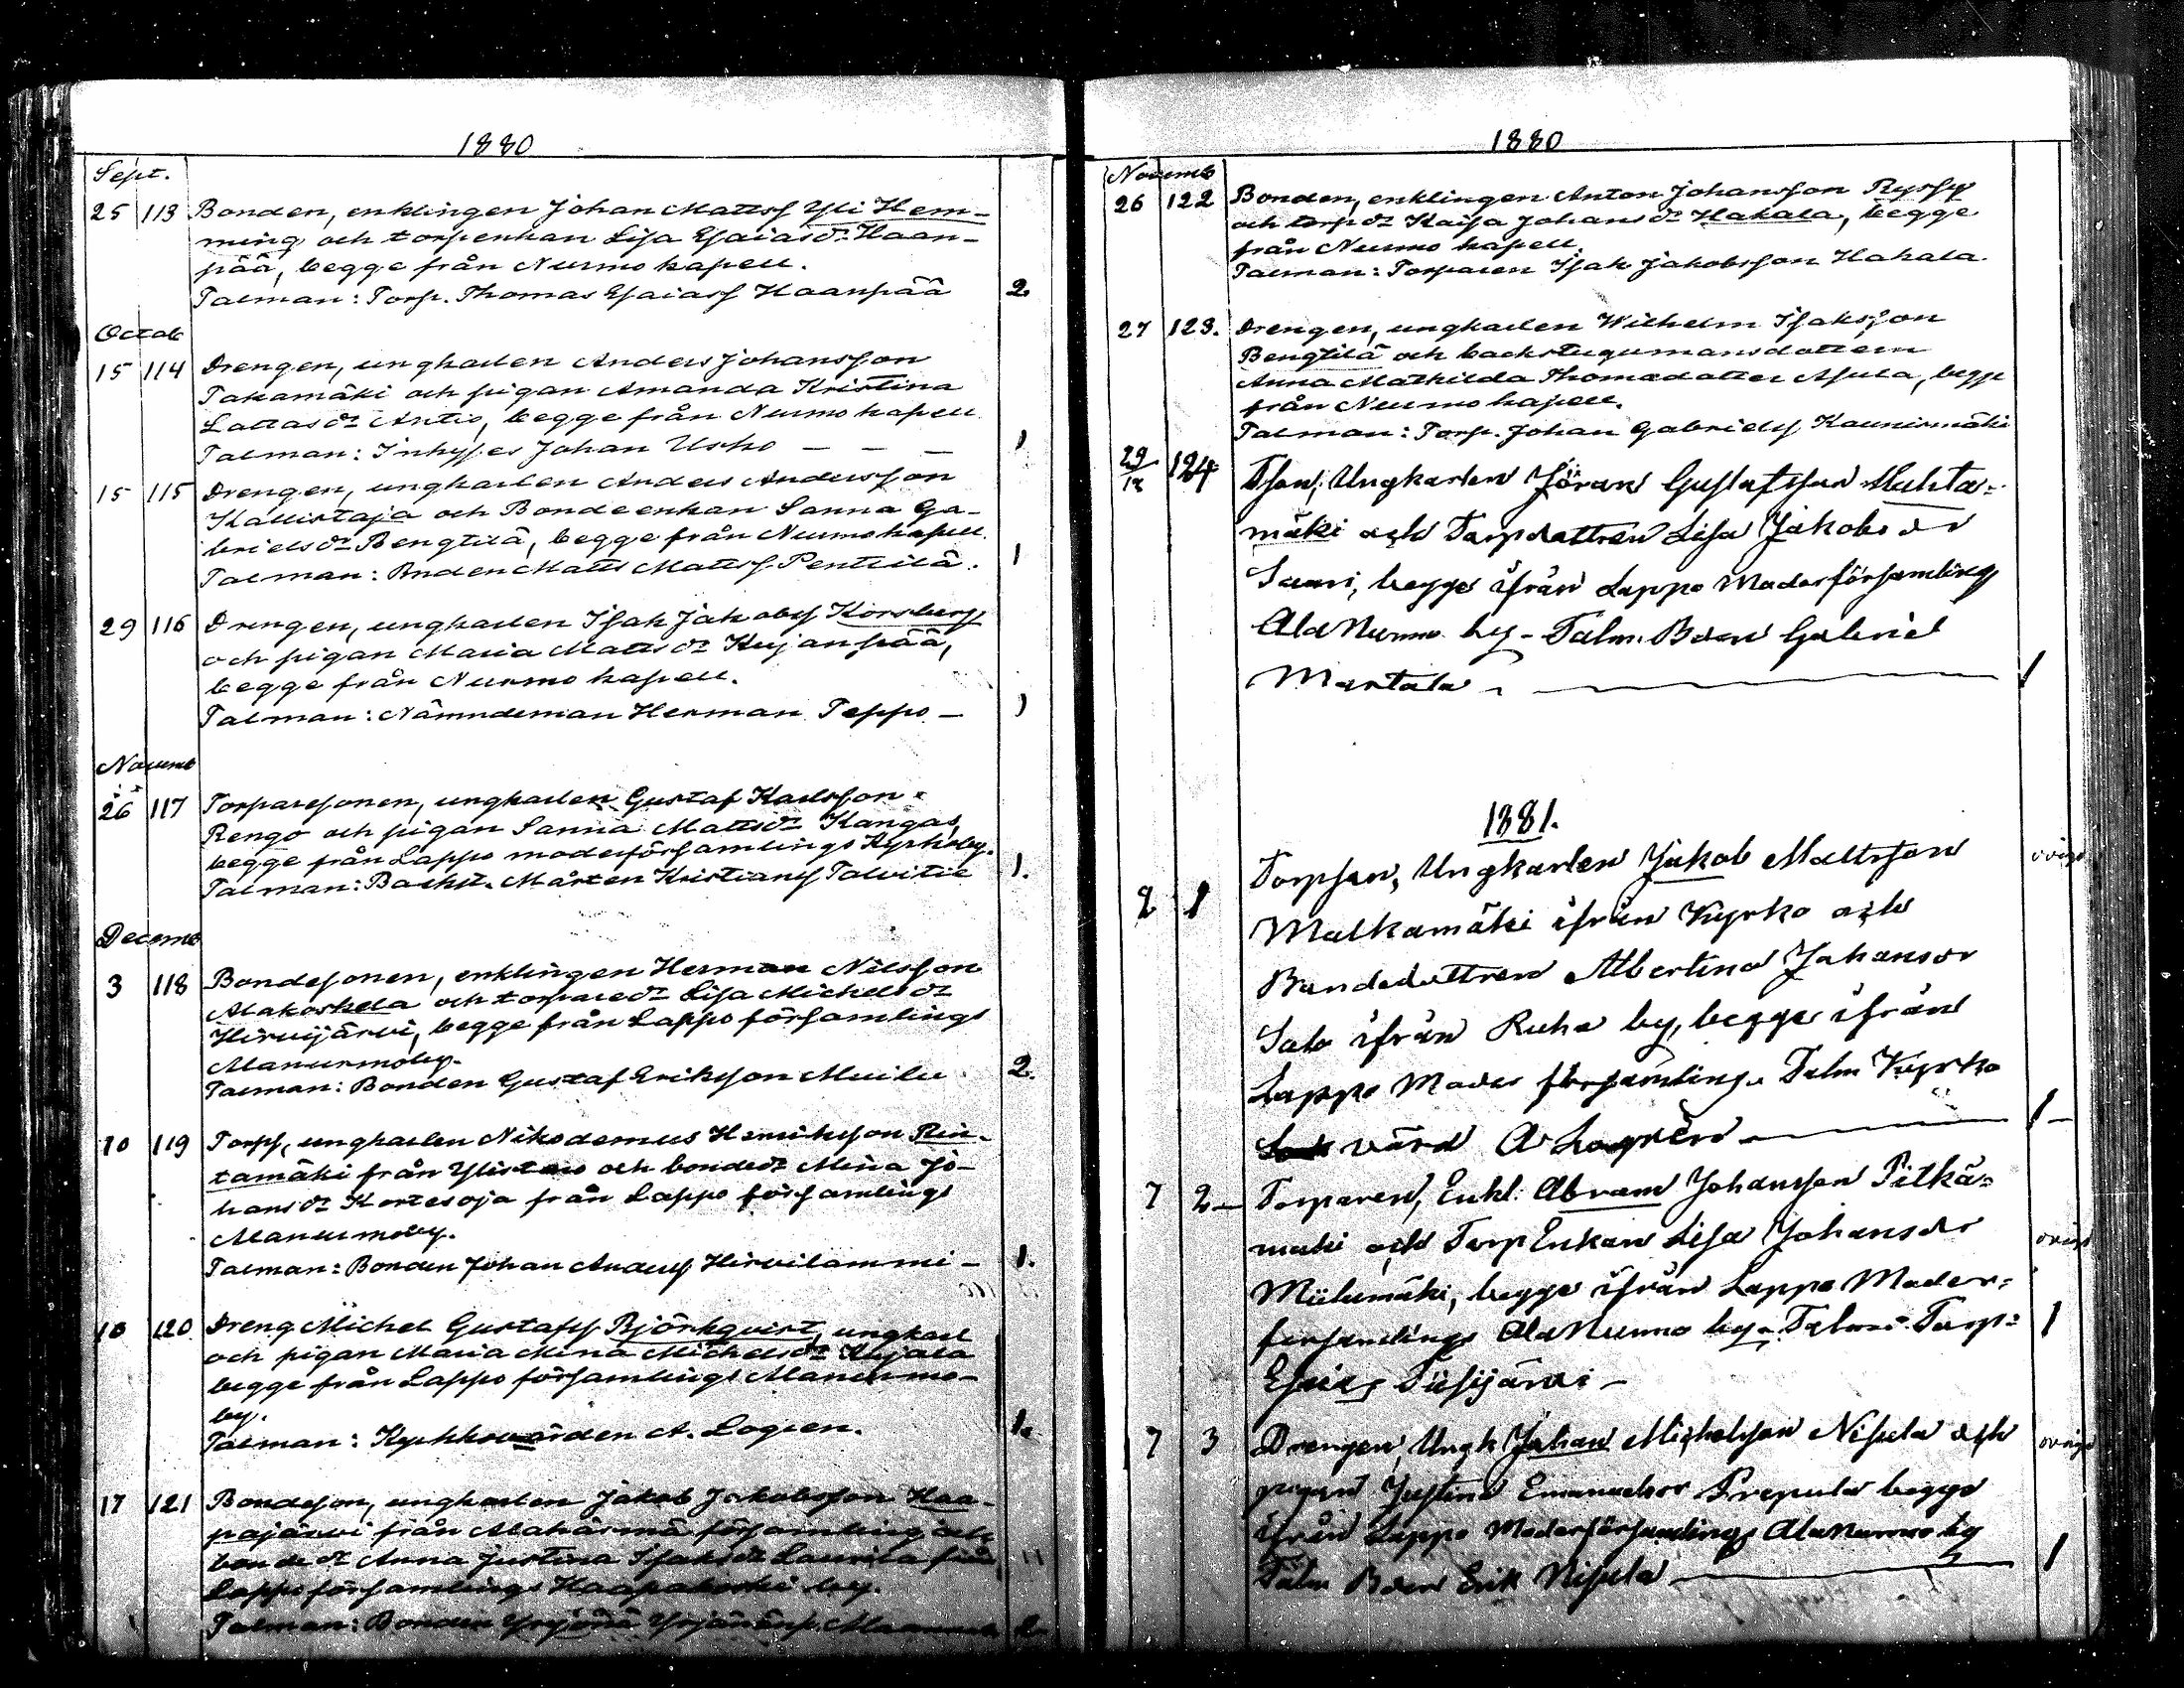 1880
Sept.
25 113 Bonden, enklingen Johan Mattsf Yli Hem-
ming och torpenkan Lisa Esaiasdr Haan-
pää, begge från Nurmo kapell.
Talman: Torp. Thomas Esaiasf Haanpää 2
Octob
15 114 Drengen, ungkarlen Anders Johansson
Takamäki och pigan Amanda Kristina
dr Antio, begge från Nurmo kapell
Talman: Inhyses Johan Usko — — — 1
15 115 Drengen, ungkarlen Anders Andersson
Kallistaja och Bondeenkan Sanna Ga-
brielsdr Bengtilä, begge från Nurmo kapell.
Talman: Bnden Matts Mattsf Penttilä. 1
29 116 Drengen, ungkarlen Isak Jakobsf Korsberg
och pigan Maria Mattsdr Kujanpää,
begge från Nurmo kapell.
Talman: Nämndeman Herman Teppo — 1
Novemb
26 117 Torparesonen, ungkarlen Gustaf Karlsson
Rengo och pigan Sanna Mattsdr Kangas,
begge från Lappo moderförsamlings Kyrkoby.
Talman: Backst. Mårten Kristiansf Talvitie 1.
Decemb
3 118 Bondesonen, enklingen Herman Nilsson
Alakoskela och torparedr Lisa Michelsdr
Hirvijärvi, begge från Lappo församlings
Alanurmoby.
Talman: Bonden Gustaf Eriksson Muilu 2.
10 119 Torps, ungkarlen Nikodemus Henriksson Rin-
tamäki från Ylistaro och bondedr Mina Jo-
hansdr Kortesoja från Lappo församlings
Alanurmoby.
Talman: Bonden Johan Andersf Hirvilammi — 1.
10 120 Dreng Michel Gustafsf Björkqvist, ungkarl
och pigan Maria Mina Michelsdr Kujala
begge från Lappo församlings Alanurmo-
by.
Talman: Kyrkovärden A. Logren. 1.
17 121 Bondeson, ungkarlen Jakob Jakobsson Haa-
pajärvi från Alahärmä församling och
bondedr Anna Justina Isaksdr Laurila från
Lappo församlings Haapakoski by.
Talman: Bonden Yrjänä 2
1880
Novemb
26 122 Bonden, enklingen Anton Johansson Ryssy
och torpdr Kaisa Johansdr Hakala, begge
från Nurmo kapell.
Talman: Torparen Isak Jakobsson Hakala.
27 123. Drengen, ungkarlen Wilhelm Isaksson
Bengtilä och backstugumansdottern
Anna Mathilda Thomasdotter Asula, begge
från Nurmo kapell.
Talman: Torp. Johan Gabrielsf Kaunismäki
29/12 124 Ungkarlen Jöran Gustafsson Mahta-
mäki och Torpdottren Lisa Jakobsdr
Saari, begge ifrån Lappo Moderförsamlings
AlaNurmo by - Talm. Bden Gabriel
Martala 1
1881.
2 1 Torpson, Ungkarlen Jakob Mattsson
Malkamäki ifrån Kyrko och
Bondedottren Albertina Johansdr
Salo ifrån Ruha by, begge ifrån
Lappo Moder församling. Talm Kyrko
värd A Logrèn 1
7 2 Torparen, Enkl. Abram Johansson Pitkä-
maki och TorpEnkan Lisa Johansdr
Miilumäki, begge ifrån Lappo Moder-
forsamlings AlaNurmo by. Talm. Torp-
Esaias Tiisijärvi — 1
7 3 Drengen, Ungk Johan Michelsson Nisula och
pigan Justina Emanuelsdr Prepula begge
ifrån Lappo Moderförsamlings AlaNurmo by
Talm Bden Erik Nisula 1